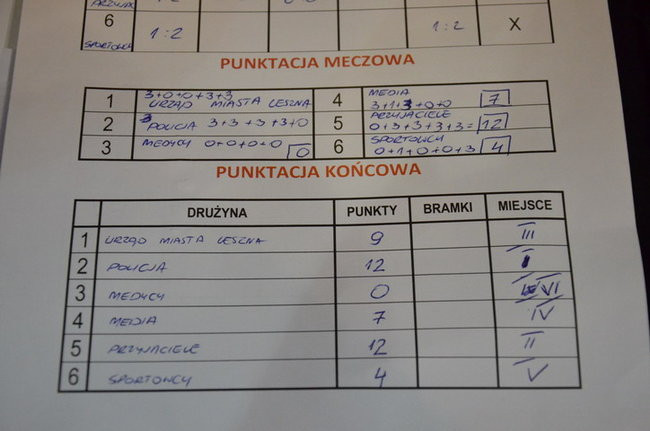 6 1:2 1:2 X
SPORTOWCY
PUNKTACJA MECZOWA
1 3+0+0+3+3 URZĄD MIASTA LESZNA
4 MEDIA 3+1+3+0+0 7
2 POLICJA 3+3+3+3+0
5 PRZYJACIELE 0+3+3+3+3= 12
3 MEDYCY 0+0+0+0 0
6 SPORTOWCY 0+1+0+0+3 4
PUNKTACJA KOŃCOWA
DRUŻYNA PUNKTY BRAMKI MIEJSCE
1 URZĄD MIASTA LESZNA 9 III
2 POLICJA 12 I
3 MEDYCY 0 VI
4 MEDIA 7 IV
5 PRZYJACIELE 12 II
6 SPORTOWCY 4 V